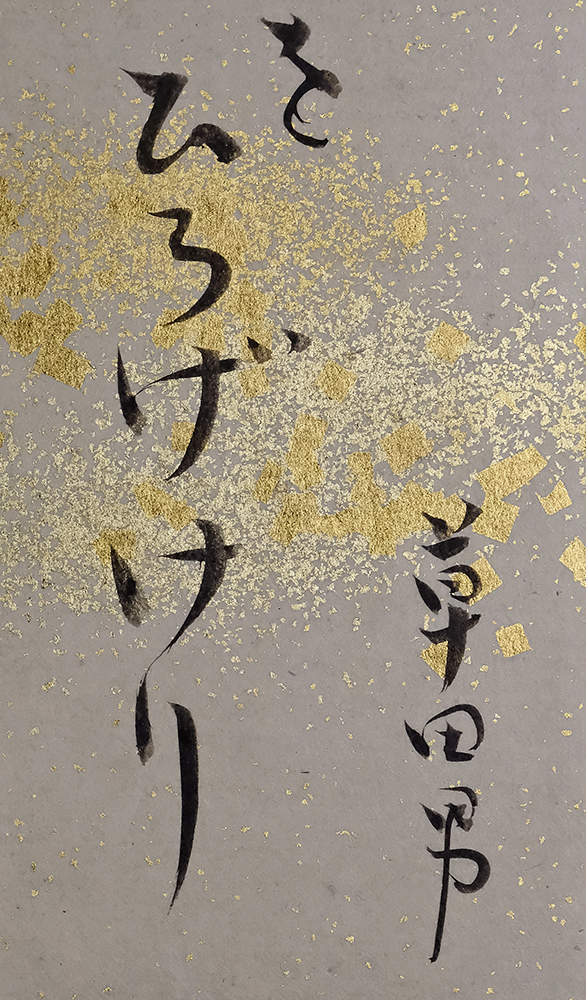 を
ひろげけり
草田男